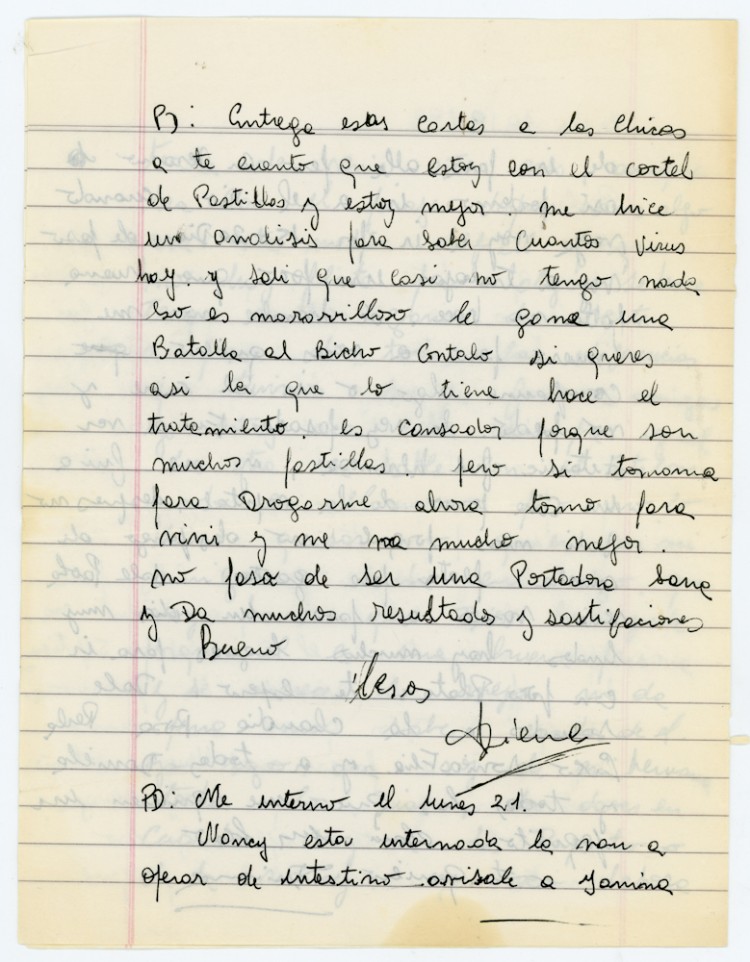 PD: Entrega estas cartas a las Chicas
a te cuento que Estoy con el coctel
de Pastillas y estoy mejor. me hice
un analisis para saber Cuantos Virus
hay. y sali que casi no tengo nada
Eso es maravilloso le gane una
Batalla al Bicho Contalo si queres
asi la que lo tiene hace el
tratamiento. es Cansador porque son
muchas pastillas. pero si tomama
para Drogarme ahora tomo para
vivir y me va mucho mejor.
no pasa de ser una Portadora Sana
y Da muchos resultados y sastifaciones
Bueno
Besos
PD: Me interno el lunes 21.
Nancy esta internada la van a
operar de intestino avisale a Yamina